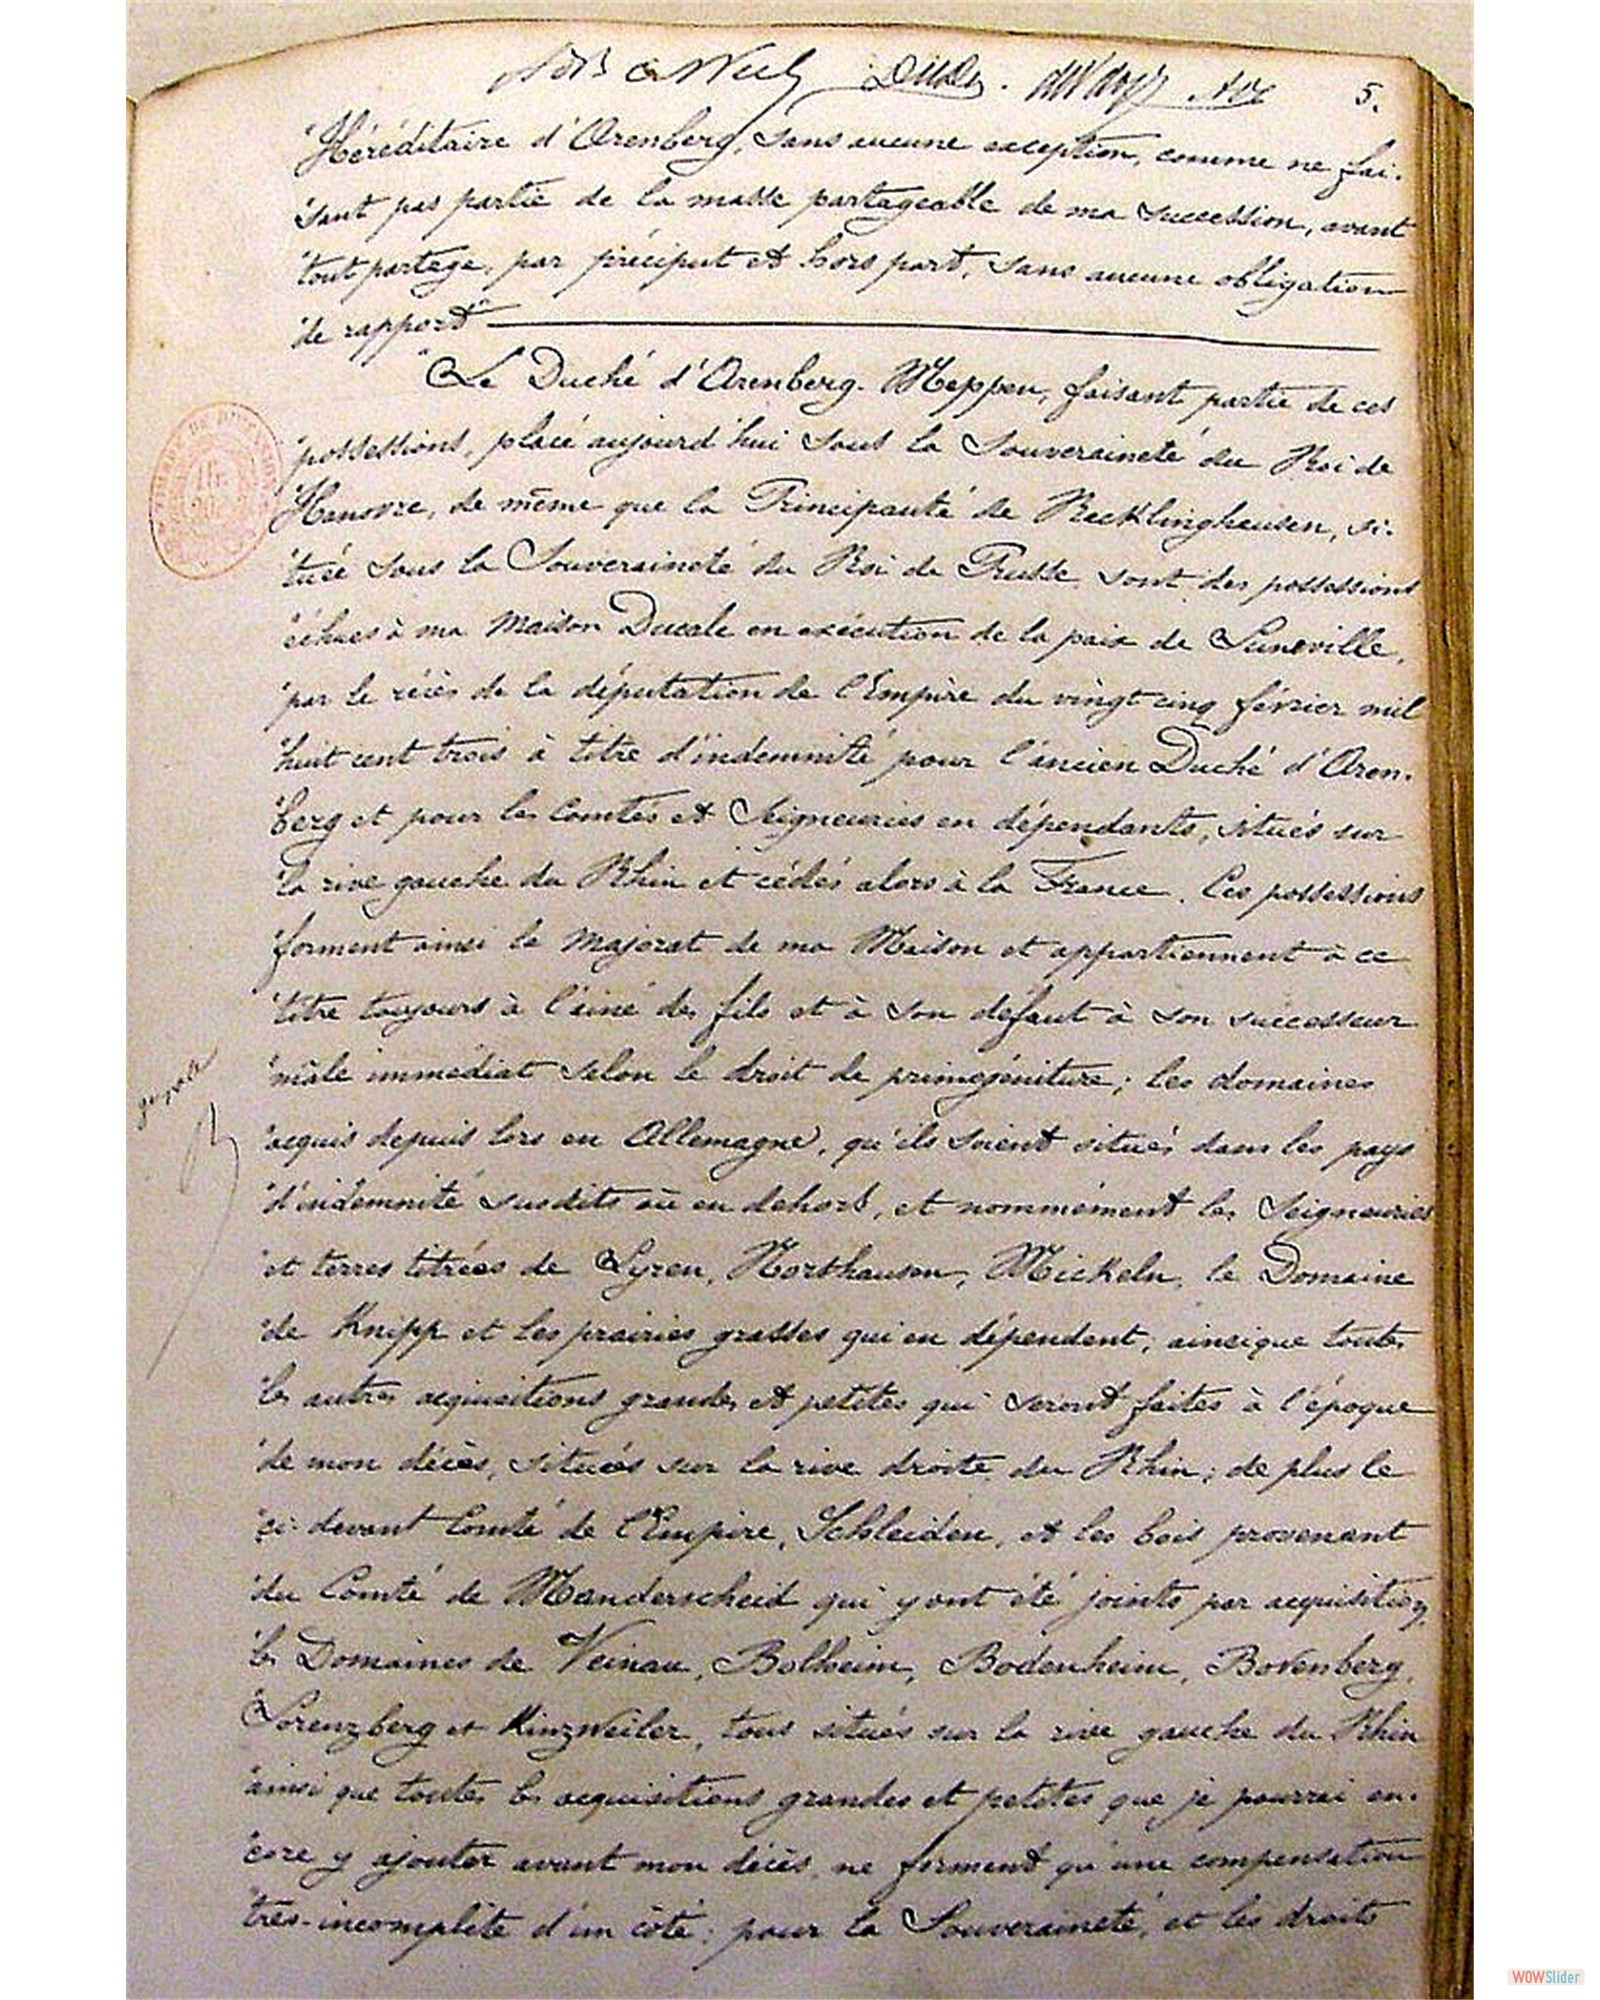 5.
"Héréditaire d'Arenberg, sans aucune exception, comme ne fai-
"sant pas partie de la masse partageable de ma succession, avant
"tout partage, par préciput et hors part, sans aucune obligation
"de rapport"
"Le Duché d'Arenberg-Meppen, faisant partie de ces
"possessions, placé aujourd'hui sous la Souveraineté du Roi de
"Hanovre, de même que la Principauté de Recklinghausen, si-
"tuée sous la Souveraineté du Roi de Prusse sont des possessions
"échues à ma Maison Ducale en exécution de la paix de Luneville,
"par le récès de la députation de l'Empire du vingt cinq février mil
"huit cent trois à titre d'indemnité pour l'ancien Duché d'Aren-
"berg et pour les Comtés et Seigneuries en dépendants, situés sur
"la rive gauche du Rhin et cédés alors à la France. Ces possessions
"forment ainsi le Majorat de ma Maison et appartiennent à ce
"titre toujours à l'ainé des fils et à son défaut à son successeur
"mâle immédiat selon le droit de primogéniture; les domaines
"acquis depuis lors en Allemagne, qu'ils soient situés dans les pays
"d'indemnité susdits ou en dehors, et nommément les Seigneuries
"et terres titrées de Lyren, Northausen, Mickeln, le Domaine
"de Knipp et les prairies grasses qui en dépendent; ainsi que toutes
"les autres acquisitions grandes et petites qui seront faites à l'époque
"de mon décès, situées sur la rive droite du Rhin; de plus le
"ci-devant Comté de l'Empire, Schleiden, et les bois provenant
"du Comté de Manderscheid qui y ont été joints par acquisition,
"les Domaines de Veinau, Bolheim, Bodenheim, Bovenberg,
"Lorenzberg et Kinzweiler, tous situés sur la rive gauche du Rhin
"ainsi que toutes les acquisitions grandes et petites que je pourrai en-
"core y ajouter avant mon décès, ne forment qu'une compensation
"très-incomplète d'un côté; pour la Souveraineté, et les droits
WOWSlider